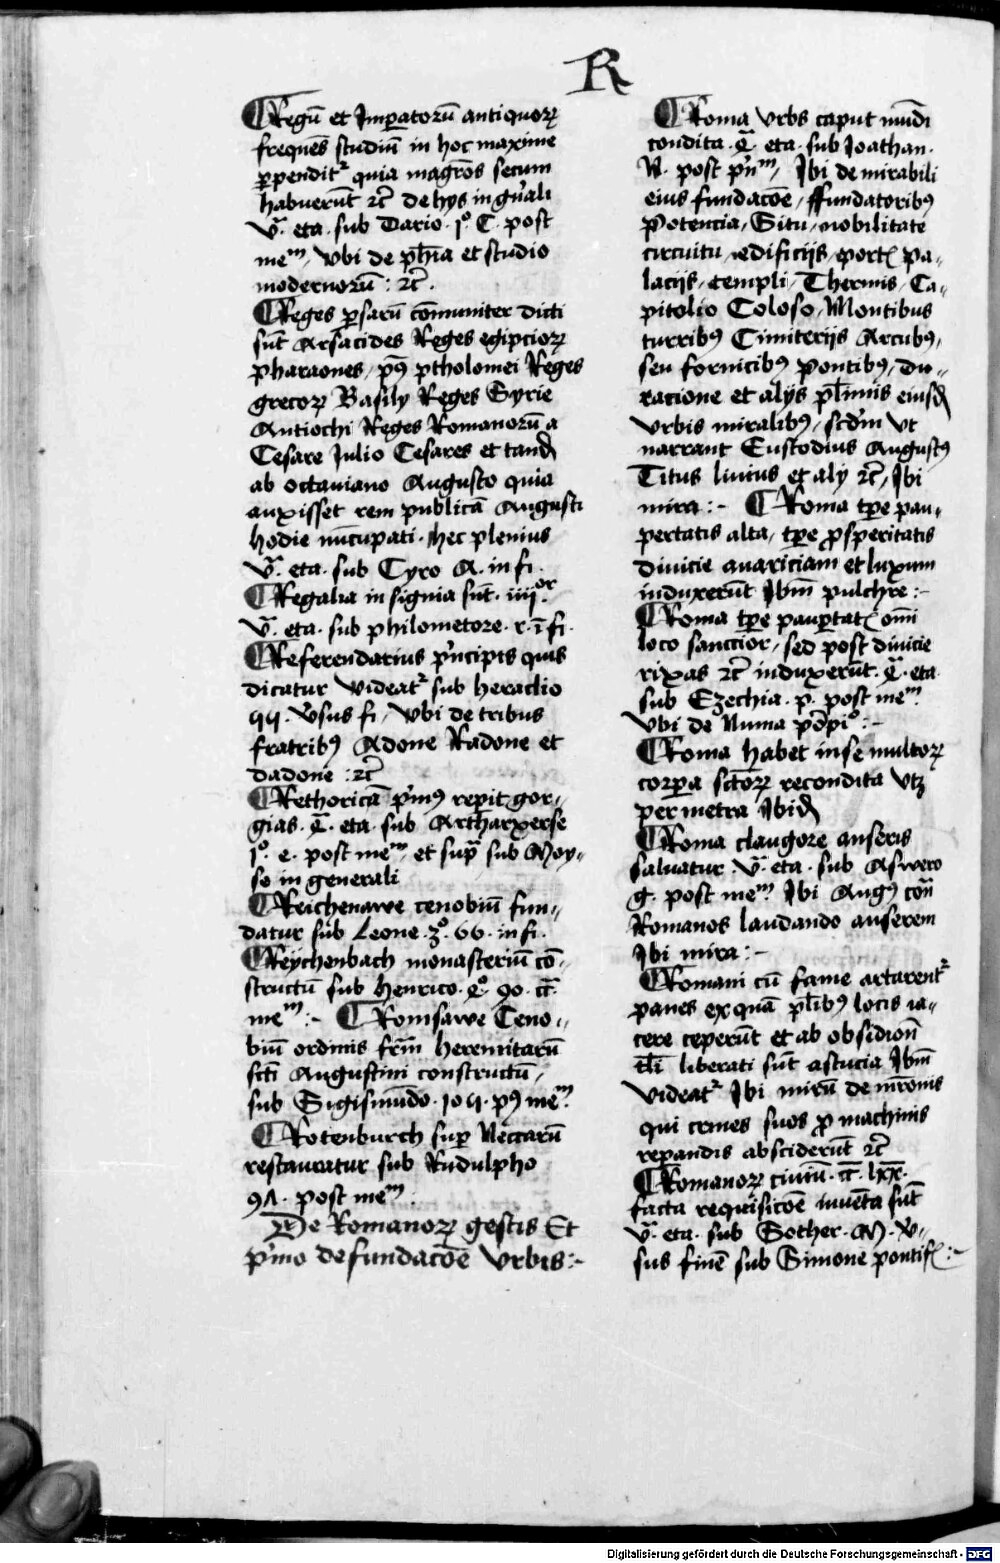 R
Regū et Imꝑatorū antiquoꝝ
frequēs studiū in hoc maxime
ꝑpendit᷑ quia magr̄os secum
habuerūt ⁊c̄ de hys in gn̄ali
v.ͣ eta. sub Dario. j.º C. post
meᵐ, vbi de ph̄ia et studio
modernorū : ⁊c̄.
Reges ꝑsarū cōmuniter dicti
sūt Arsacides Reges egipcioꝝ
pharaones, pꝰ ptholomei Reges
grecoꝝ Basily Reges Syrie
Antiochi Reges Romanorū a
Cesare Julio Cesares et tandē
ab octauiano Augusto quia
auxisset rem publicā Augusti
hodie nūcupati. hec plenius
v.ͣ eta. sub Cyro A. in fi.
Regalia in signia sūt. iiij.ᵒʳ
v.ͣ eta. sub philometore. r. ī fi.
Referendarius pͥncipis quis
dicatur videat᷑ sub heraclio
qq. v̓sus fi, vbi de tribus
fratribꝰ Adone Radone et
dadone :⁊c̄
Rethoricā pͥmꝰ reperit gor-
gias. q̄. eta. sub Artharxerse
j.º e. post meᵐ, et supͣ sub Moy-
se in generali
Reichenawe cenobiū fun-
datur sub Leone. 3.º 66. in fi.
Reychenbach monasteriū cō-
structū sub henrico. q.º 90. c̄t̄
meᵐ :- Romsawe Ceno-
biū ordinis fr̄m heremitarū
scti Augustini constructū,
sub Sigismūdo. 104. pꝰ meᵐ.
Rotenburch suꝑ Neccarū
restauratur sub Rudulpho
91. post meᵐ
De Romanoꝝ gestis Et
pͥmo de fundacōe vrbis :-
Roma vrbs caput mūdi
condita. q̄. eta. sub Joathan.
N. post pͥnᵐ, Ibi de mirabili
eius fundacōe, ffundatoribꝰ
Potencia, Situ, nobilitate
circuitu, edificijs, portꝭ pa-
lacijs, templi, Thermis, Ca-
pitolio Coloso, Montibus
turribꝰ Cimiterijs Arcubꝰ,
seu fornicibꝰ pontibꝰ, du-
racione et alijs pl̄imis eiusdē
vrbis miralibꝰ, scd̄m vt
narrant Eustodius Augustꝰ
Titus liuius et aly ⁊c̄, Ibi
mira :- Roma tp̄e pau-
pertatis alta, tp̄e ꝓsperitatis
diuicie auariciam et luxum
induxerūt Ibm̄ pulchre :-
Roma tp̄e pauꝑtatꝭ om̄i
loco sanctior, sed post diuicie
rixas ⁊c̄ induxerūt. q̄. eta.
sub Ezechia. p. post meᵐ.
vbi de Numa pōpiº :-
Roma habet in se multoꝝ
corpa sctoꝝ recondita vtꝫ
per metra Ibidē
Roma clangore anseris
saluatur. v.ͣ eta. sub Aswero
g. post meᵐ Ibi Augꝰ con̄
Romanos laudando anserem
Ibi mira :-
Romani cū fame artarent᷑
panes ex quā pl̄ibꝰ locis ia-
cere ceperūt et ab obsidion̄
tl̄i liberati sūt astucia Ibm̄
videat᷑ Ibi mirū de mr̄onis
qui crines suos ꝓ machinis
reꝑandis absciderūt ⁊c̄
Romanoꝝ ciuiū. c̄t̄. lxx.
facta requisicōe inuēta sūt
v.ͣ eta. sub Sother. M. v̓-
sus finē sub Simone pontifꝭ :-
Digitalisierung gefördert durch die Deutsche Forschungsgemeinschaft - DFG